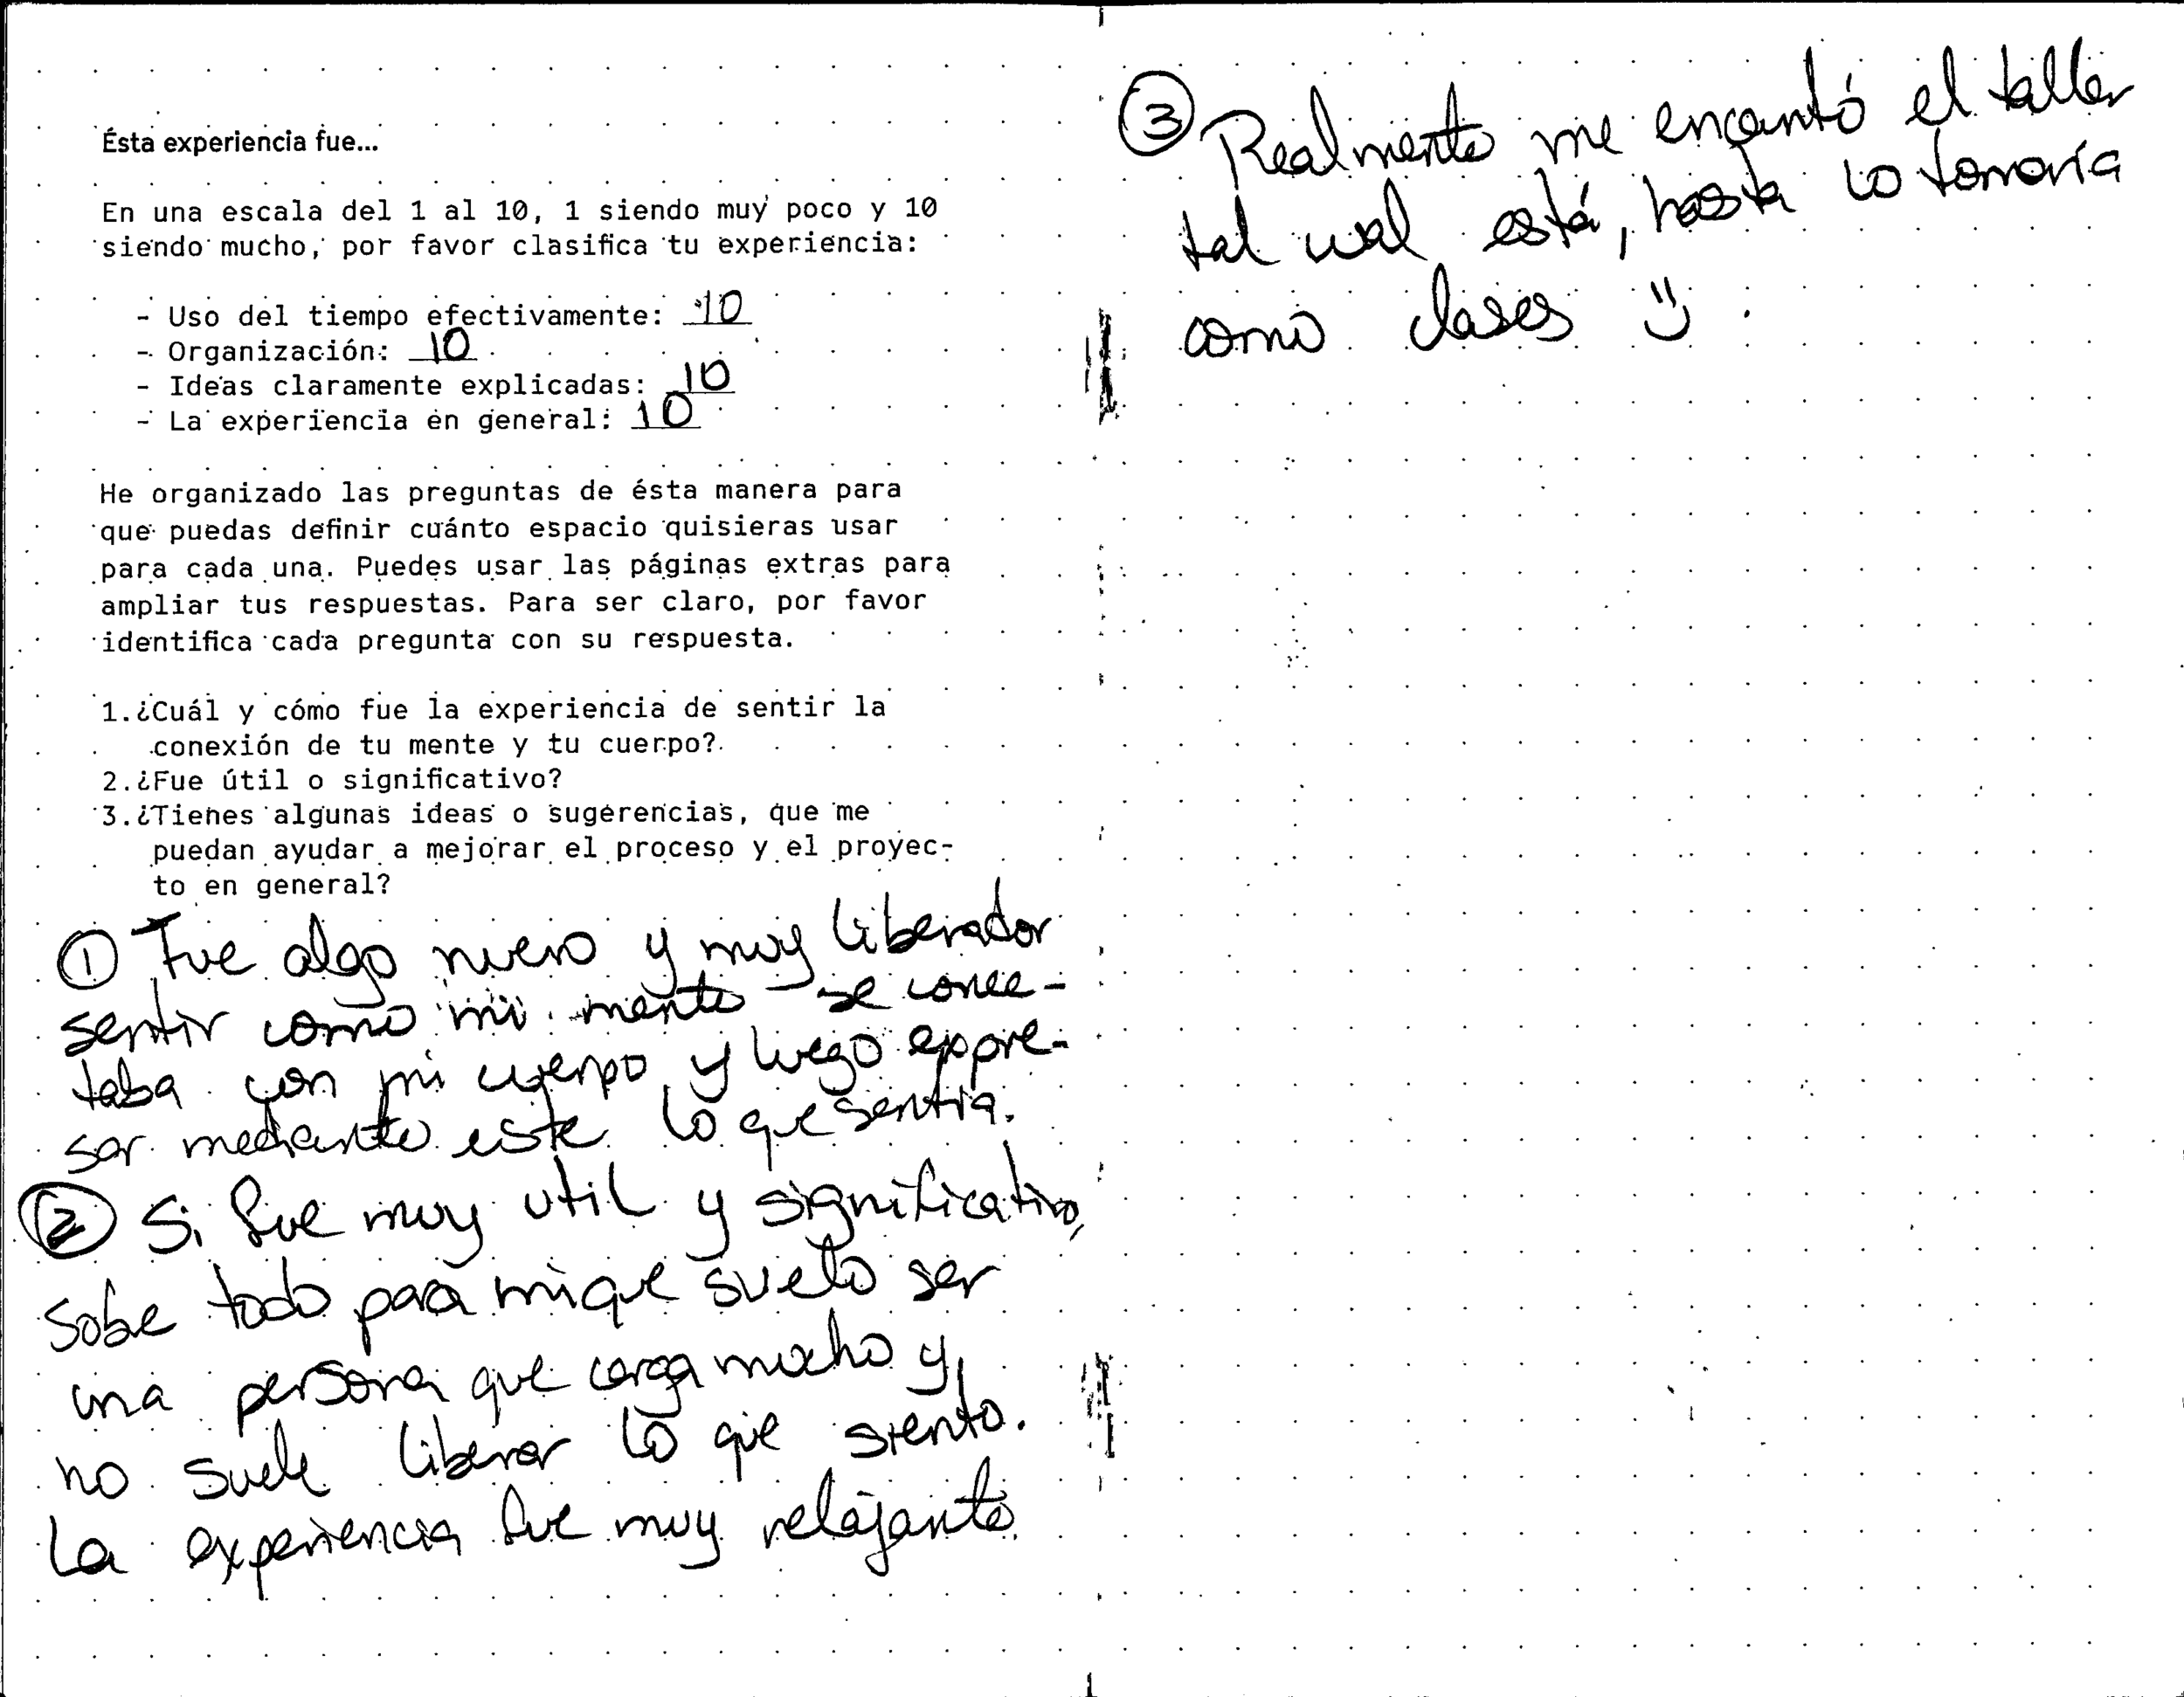 Ésta experiencia fue...
En una escala del 1 al 10, 1 siendo muy poco y 10
siendo mucho, por favor clasifica tu experiencia:
- Uso del tiempo efectivamente: 10
- Organización: 10
- Ideas claramente explicadas: 10
- La experiencia en general: 10
He organizado las preguntas de ésta manera para
que puedas definir cuánto espacio quisieras usar
para cada una. Puedes usar las páginas extras para
ampliar tus respuestas. Para ser claro, por favor
identifica cada pregunta con su respuesta.
1.¿Cuál y cómo fue la experiencia de sentir la
conexión de tu mente y tu cuerpo?
2.¿Fue útil o significativo?
3.¿Tienes algunas ideas o sugerencias, que me
puedan ayudar a mejorar el proceso y el proyec-
to en general?
① Fue algo nuevo y muy liberador
sentir como mi mente se conec-
taba con mi cuerpo y luego expre-
sar mediante este lo que sentia.
② Si fue muy util y significativo,
sobe todo para mi que suelo ser
una persona que carga mucho y
no suele liberar lo que siento.
La experiencia fue muy relajante.
③ Realmente me encantó el taller
tal cual está, hasta lo tomaría
como clases :)